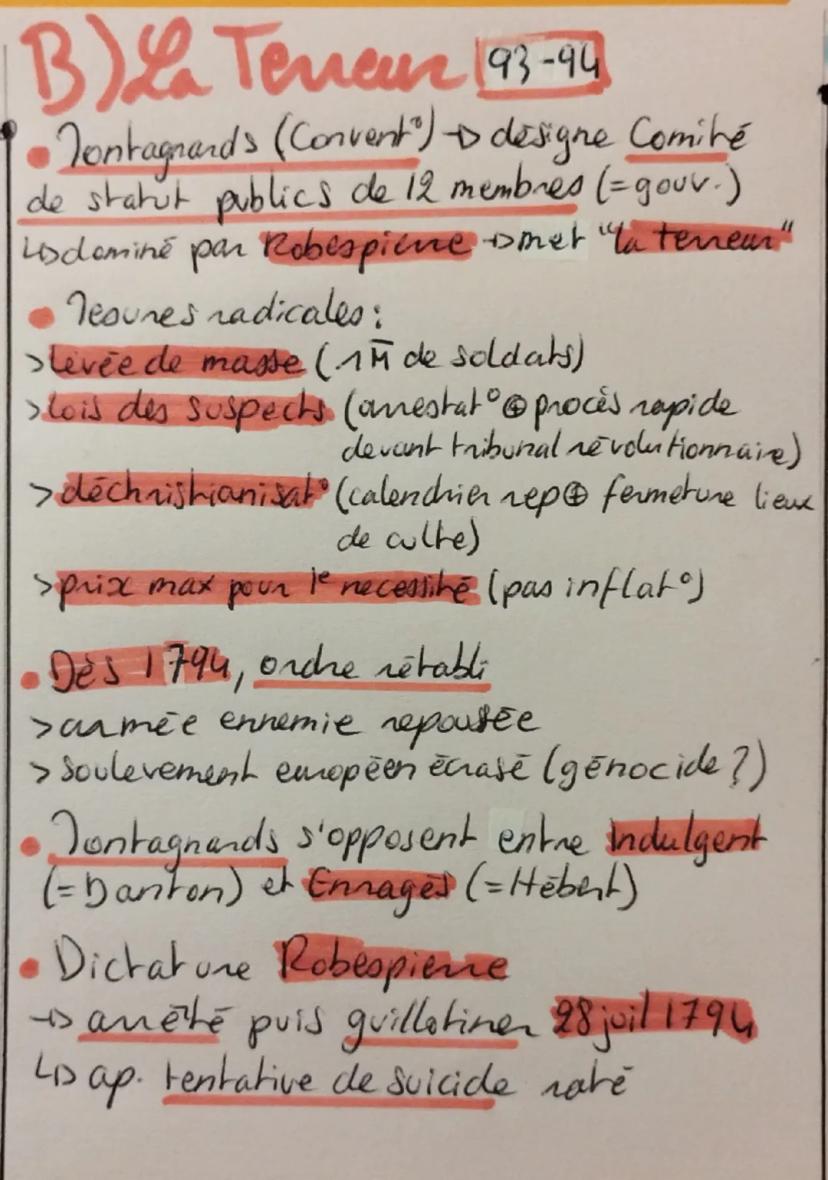 B) La Terreur 93-94
• Montagnards (Convent°) → désigne Comité
de statut publics de 12 membres (= gouv.)
↳ dominé par Robespierre → met "la terreur"
• Mesures radicales :
> levée de masse (1M̄ de soldats)
> lois des suspects (arrestat° ⊕ procès rapide
devant tribunal révolutionnaire)
> déchristianisat° (calendrier rep ⊕ fermeture lieux
de culte)
> prix max pour 1e necessité (pas inflat°)
• Dès 1794, ordre rétabli
> armée ennemie repoussée
> soulevement européen écrasé (génocide ?)
• Montagnards s'opposent entre Indulgent
(= Danton) et Enragés (= Hébert)
• Dictature Robespierre
→ arrêté puis guillotiner 28 juil 1794
↳ ap. tentative de suicide raté